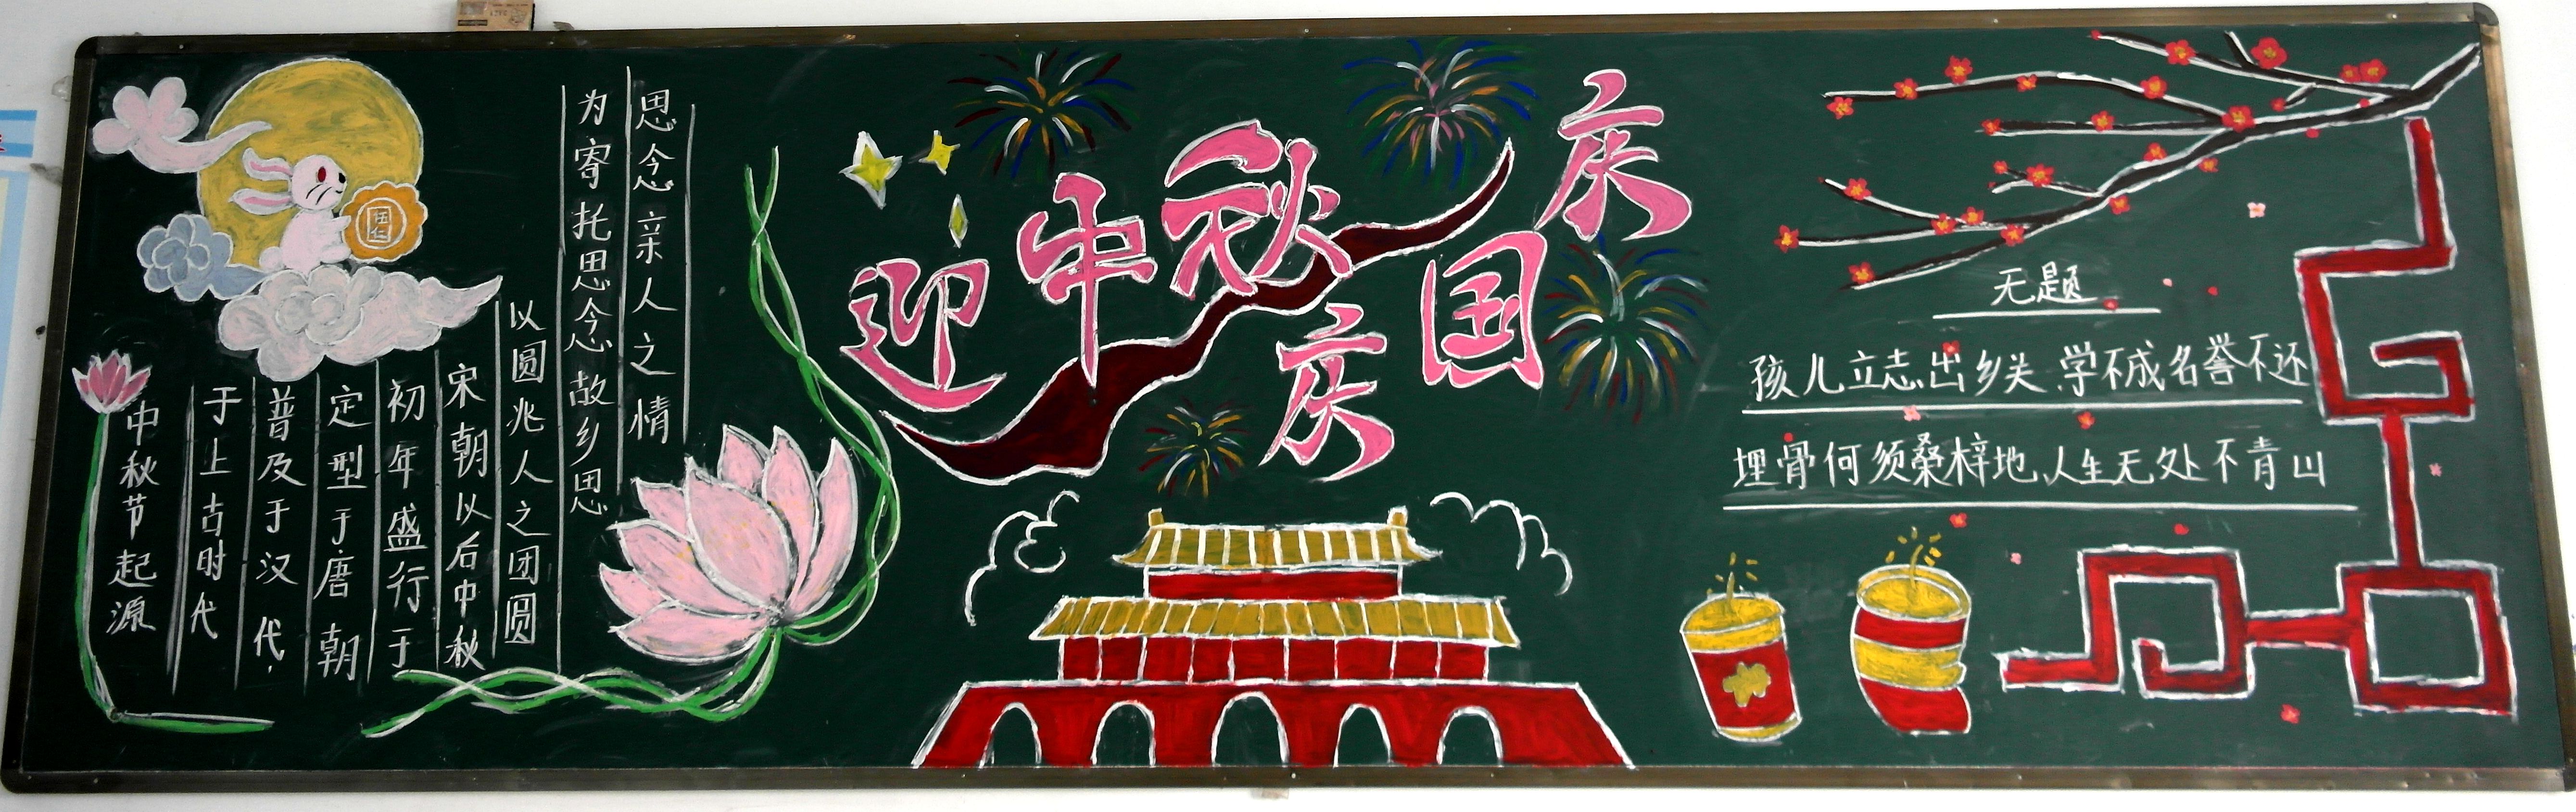 伍仁
中秋节起源
于上古时代
普及于汉代,
定型于唐朝
初年盛行于
宋朝以后中秋
以圆兆人之团圆
为寄托思念故乡思
思念亲人之情
迎中秋
庆国庆
无题
孩儿立志出乡关 学不成名誉不还
埋骨何须桑梓地人生无处不青山